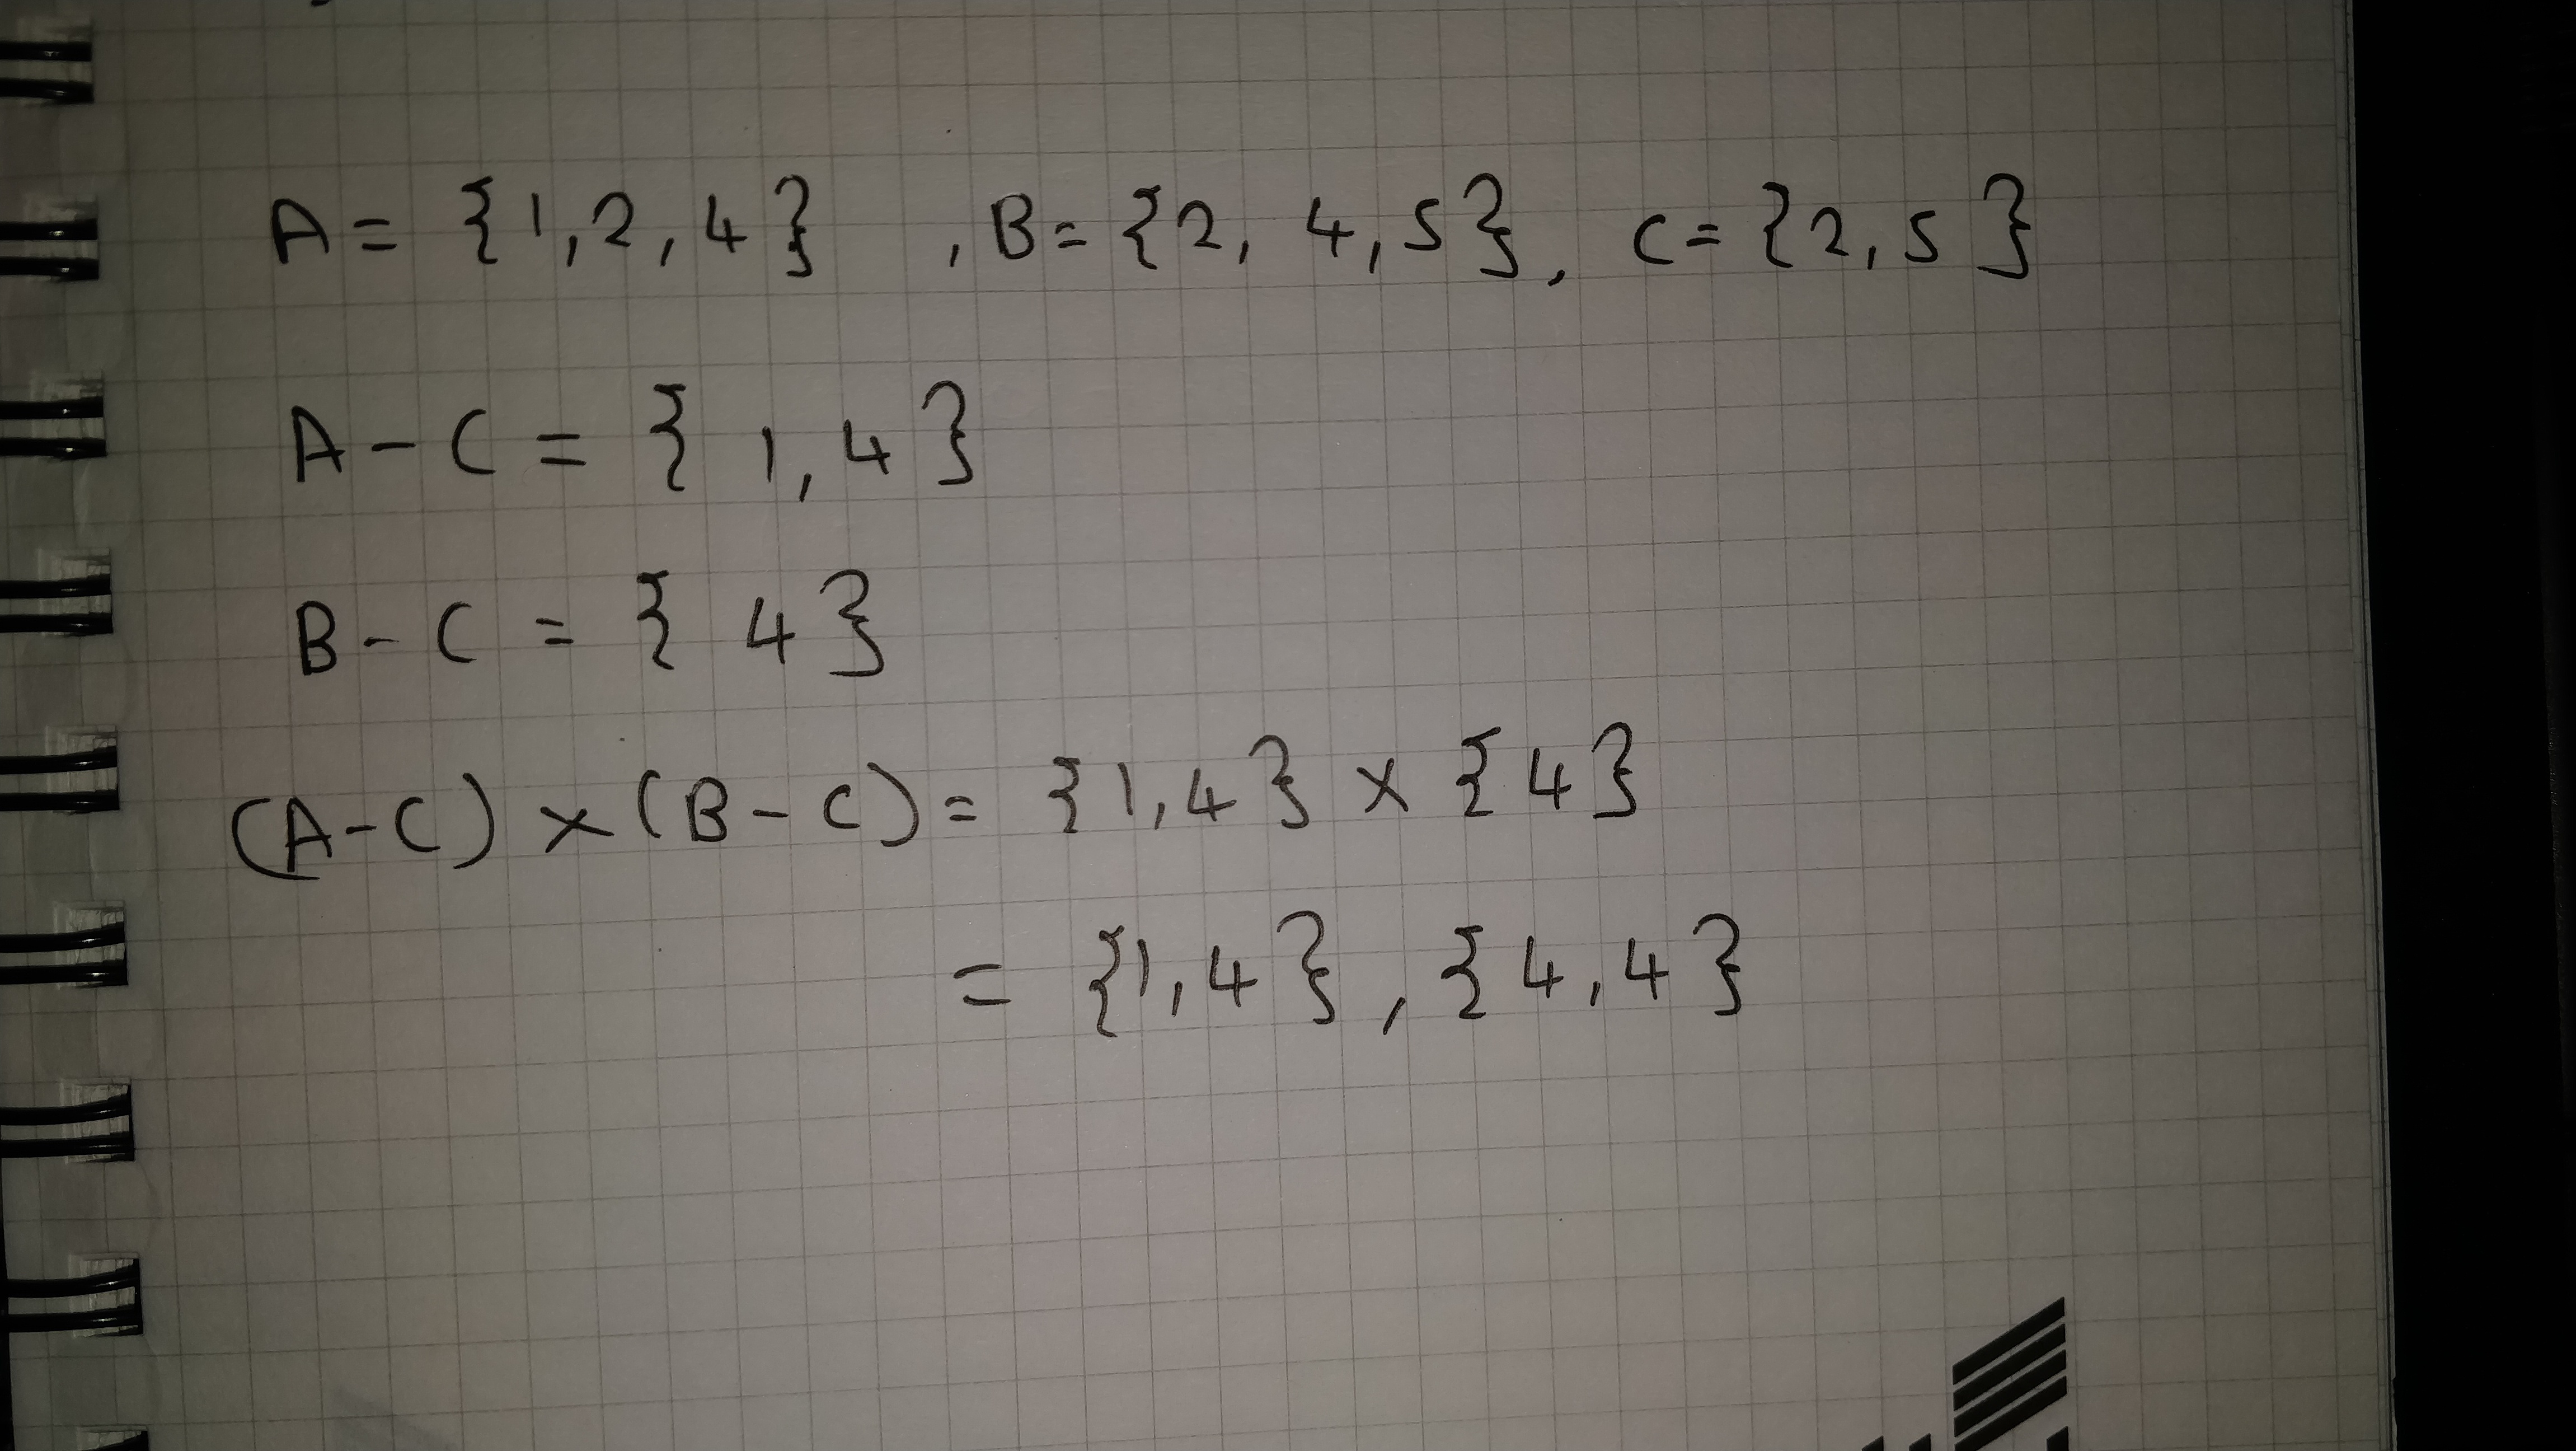 A = {1,2,4} , B = {2, 4,5}, C = {2,5 }
A - C = { 1,4 }
B - C = { 4 }
(A-C) × (B-C) = {1,4} × {4}
= {1,4} , {4,4}